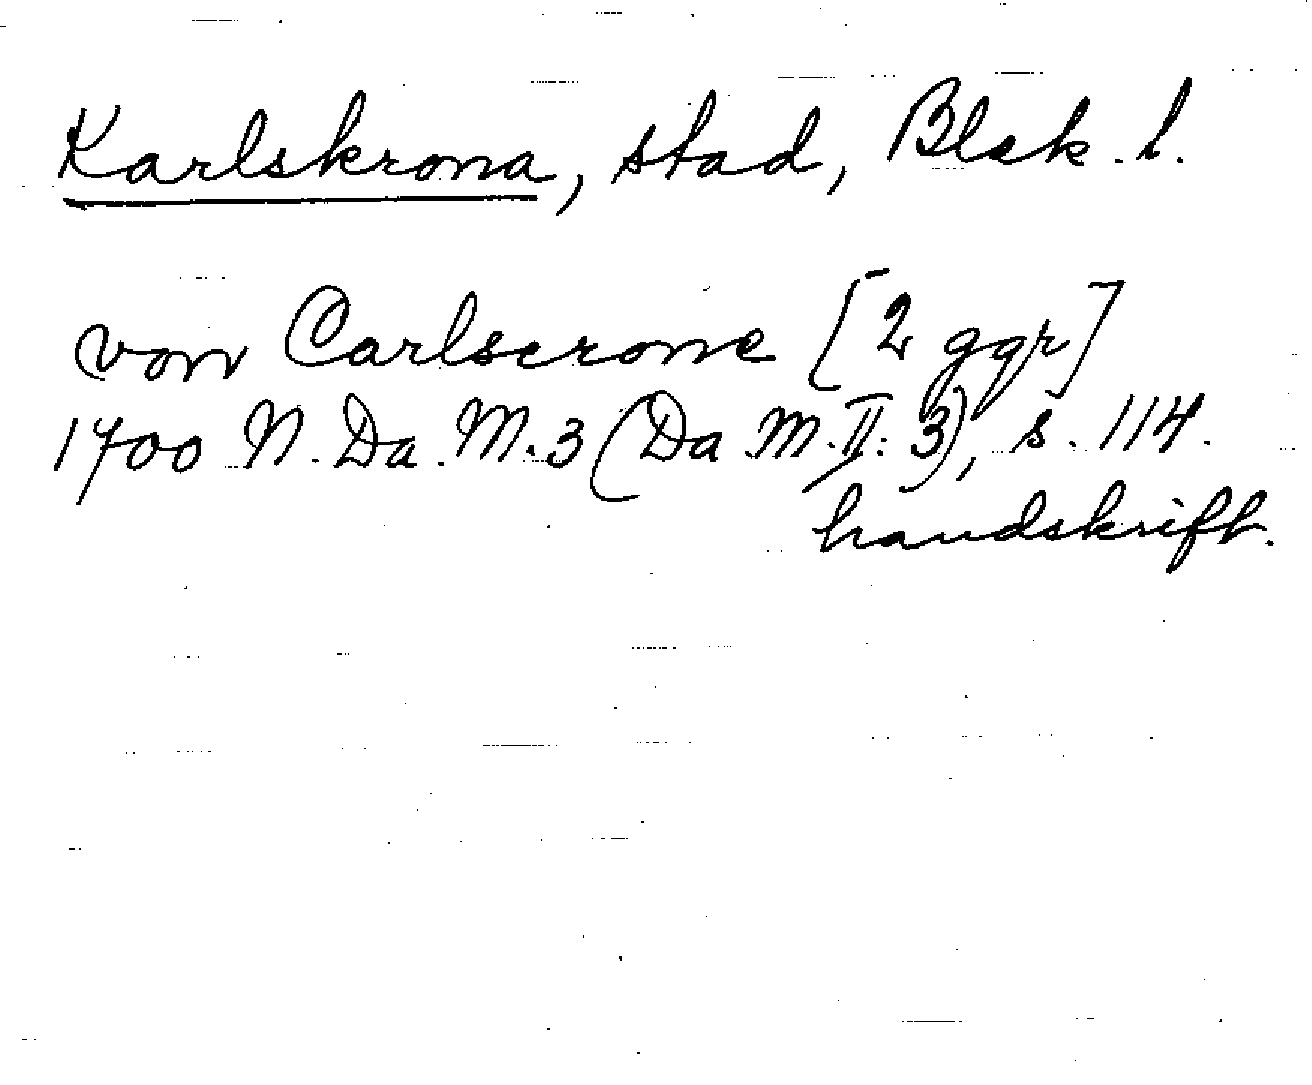 Karlskrona, stad, Blek. l.
von Carlscrone [2 ggr]
1700 N. Da. M. 3 (Da. M. II: 3), s. 114.
handskrift.